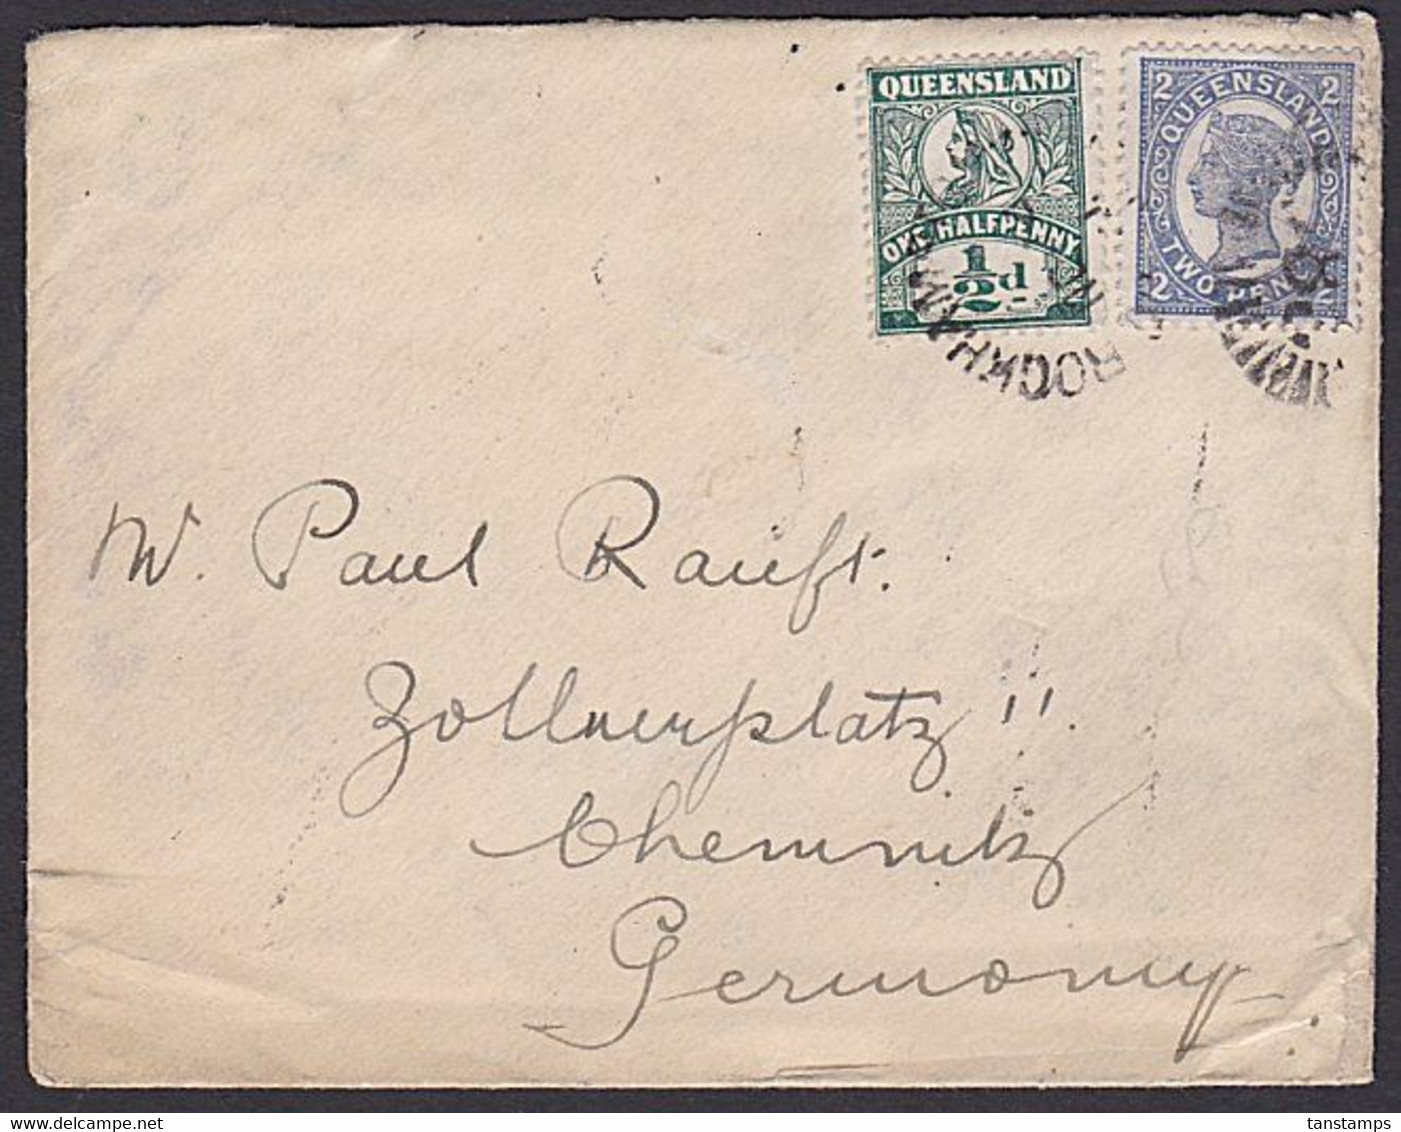 QUEENSLAND
ONE HALFPENNY
½d
2 QUEENSLAND 2
2 TWO PENCE 2
ROCKHAM
Mr. Paul Rauft.
Zöllnerplatz 11.
Chemnitz
Germany
www.delcampe.net
tanstamps